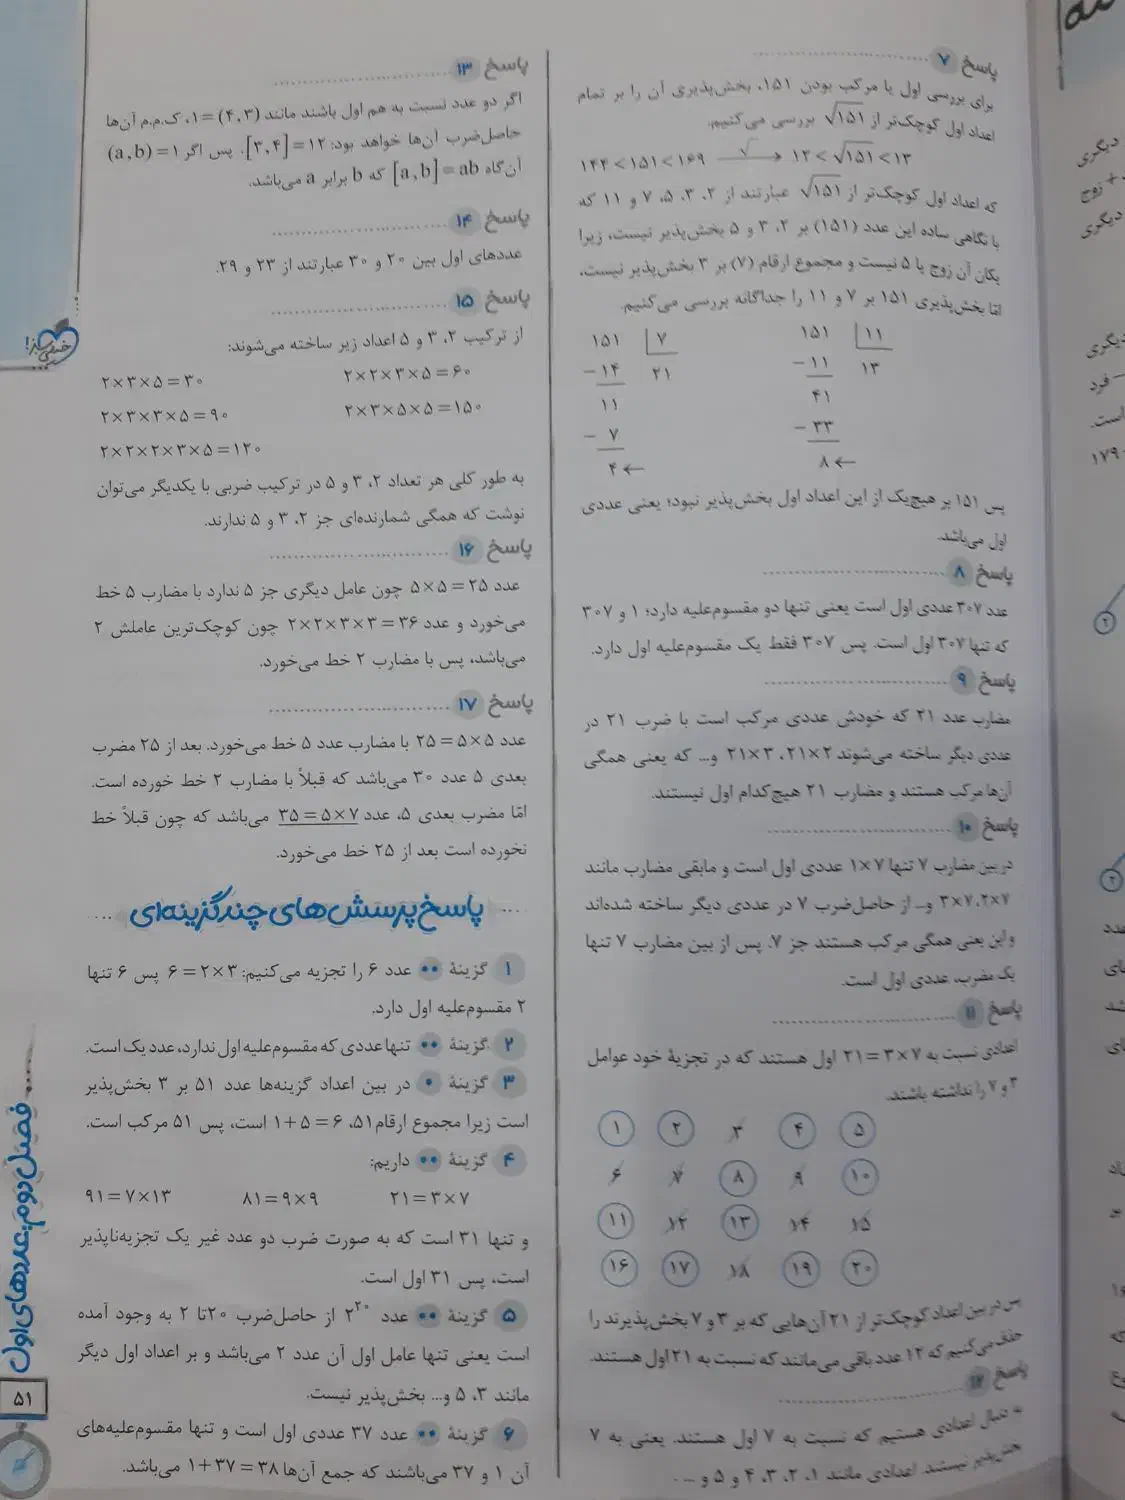 پاسخ ۷
برای بررسی اول یا مرکب بودن ۱۵۱، بخش‌پذیری آن را بر تمام
اعداد اول کوچک‌تر از √۱۵۱ بررسی می‌کنیم.
۱۴۴ < ۱۵۱ < ۱۶۹ —√→ ۱۲ < √۱۵۱ < ۱۳
که اعداد اول کوچک‌تر از √۱۵۱ عبارتند از ۲، ۳، ۵، ۷ و ۱۱ که
با نگاهی ساده این عدد (۱۵۱) بر ۲، ۳ و ۵ بخش‌پذیر نیست، زیرا
یکان آن زوج یا ۵ نیست و مجموع ارقام (۷) بر ۳ بخش‌پذیر نیست،
امّا بخش‌پذیری ۱۵۱ بر ۷ و ۱۱ را جداگانه بررسی می‌کنیم.
۱۵۱ | ۷    ۱۵۱ | ۱۱
− ۱۴   ۲۱    − ۱۱   ۱۳
۱۱    ۴۱
− ۷    − ۳۳
۴ ←    ۸ ←
پس ۱۵۱ بر هیچ‌یک از این اعداد اول بخش‌پذیر نبود؛ یعنی عددی
اول می‌باشد.
پاسخ ۸
عدد ۳۰۷ عددی اول است یعنی تنها دو مقسوم‌علیه دارد؛ ۱ و ۳۰۷
که تنها ۳۰۷ اول است. پس ۳۰۷ فقط یک مقسوم‌علیه اول دارد.
پاسخ ۹
مضارب عدد ۲۱ که خودش عددی مرکب است با ضرب ۲۱ در
عددی دیگر ساخته می‌شوند ۲×۲۱، ۳×۲۱ و... که یعنی همگی
آن‌ها مرکب هستند و مضارب ۲۱ هیچ‌کدام اول نیستند.
پاسخ ۱۰
در بین مضارب ۷ تنها ۷×۱ عددی اول است و مابقی مضارب مانند
۷×۲، ۷×۳ و... از حاصل‌ضرب ۷ در عددی دیگر ساخته شده‌اند
و این یعنی همگی مرکب هستند جز ۷. پس از بین مضارب ۷ تنها
یک مضرب، عددی اول است.
پاسخ ۱۱
اعدادی نسبت به ۷×۳=۲۱ اول هستند که در تجزیهٔ خود عوامل
۳ و ۷ را نداشته باشند.
۱ ۲ ۳ ۴ ۵
۶ ۷ ۸ ۹ ۱۰
۱۱ ۱۲ ۱۳ ۱۴ ۱۵
۱۶ ۱۷ ۱۸ ۱۹ ۲۰
پس در بین اعداد کوچک‌تر از ۲۱ آن‌هایی که بر ۳ و ۷ بخش‌پذیرند را
حذف می‌کنیم که ۱۲ عدد باقی می‌مانند که نسبت به ۲۱ اول هستند.
پاسخ ۱۲
به دنبال اعدادی هستیم که نسبت به ۷ اول هستند. یعنی به ۷
بخش‌پذیر نیستند. اعدادی مانند ۱، ۲، ۳، ۴ و ۵ و ... .
پاسخ ۱۳
اگر دو عدد نسبت به هم اول باشند مانند (۴,۳)=۱، ک.م.م آن‌ها
حاصل‌ضرب آن‌ها خواهد بود: [۳,۴]=۱۲. پس اگر (a,b)=۱
آن‌گاه [a,b]=ab که b برابر a می‌باشد.
پاسخ ۱۴
عددهای اول بین ۲۰ و ۳۰ عبارتند از ۲۳ و ۲۹.
پاسخ ۱۵
از ترکیب ۲، ۳ و ۵ اعداد زیر ساخته می‌شوند:
۲×۳×۵=۳۰    ۲×۲×۳×۵=۶۰
۲×۳×۳×۵=۹۰    ۲×۳×۵×۵=۱۵۰
۲×۲×۲×۳×۵=۱۲۰
به طور کلی هر تعداد ۲، ۳ و ۵ در ترکیب ضربی با یکدیگر می‌توان
نوشت که همگی شمارنده‌ای جز ۲، ۳ و ۵ ندارند.
پاسخ ۱۶
عدد ۲۵=۵×۵ چون عامل دیگری جز ۵ ندارد با مضارب ۵ خط
می‌خورد و عدد ۳۶=۲×۲×۳×۳ چون کوچک‌ترین عاملش ۲
می‌باشد، پس با مضارب ۲ خط می‌خورد.
پاسخ ۱۷
عدد ۵×۵=۲۵ با مضارب عدد ۵ خط می‌خورد. بعد از ۲۵ مضرب
بعدی ۵ عدد ۳۰ می‌باشد که قبلاً با مضارب ۲ خط خورده است.
امّا مضرب بعدی ۵، عدد ۷×۵=۳۵ می‌باشد که چون قبلاً خط
نخورده است بعد از ۲۵ خط می‌خورد.
پاسخ پرسش‌های چندگزینه‌ای
۱ گزینهٔ •• عدد ۶ را تجزیه می‌کنیم: ۳×۲=۶ پس ۶ تنها
۲ مقسوم‌علیه اول دارد.
۲ گزینهٔ •• تنها عددی که مقسوم‌علیه اول ندارد، عدد یک است.
۳ گزینهٔ • در بین اعداد گزینه‌ها عدد ۵۱ بر ۳ بخش‌پذیر
است زیرا مجموع ارقام ۵۱، ۶=۵+۱ است، پس ۵۱ مرکب است.
۴ گزینهٔ •• داریم:
۲۱=۳×۷    ۸۱=۹×۹    ۹۱=۷×۱۳
و تنها ۳۱ است که به صورت ضرب دو عدد غیر یک تجزیه‌ناپذیر
است، پس ۳۱ اول است.
۵ گزینهٔ •• عدد ۲^۲۰ از حاصل‌ضرب ۲۰ تا ۲ به وجود آمده
است یعنی تنها عامل اول آن عدد ۲ می‌باشد و بر اعداد اول دیگر
مانند ۳، ۵ و... بخش‌پذیر نیست.
۶ گزینهٔ •• عدد ۳۷ عددی اول است و تنها مقسوم‌علیه‌های
آن ۱ و ۳۷ می‌باشند که جمع آن‌ها ۳۸=۳۷+۱ می‌باشد.
خیلی سبز!
فصل دوم: عددهای اول
۵۱
دیگری
+ زوج
دیگری
دیگری
− فرد
است.
۱۷۹